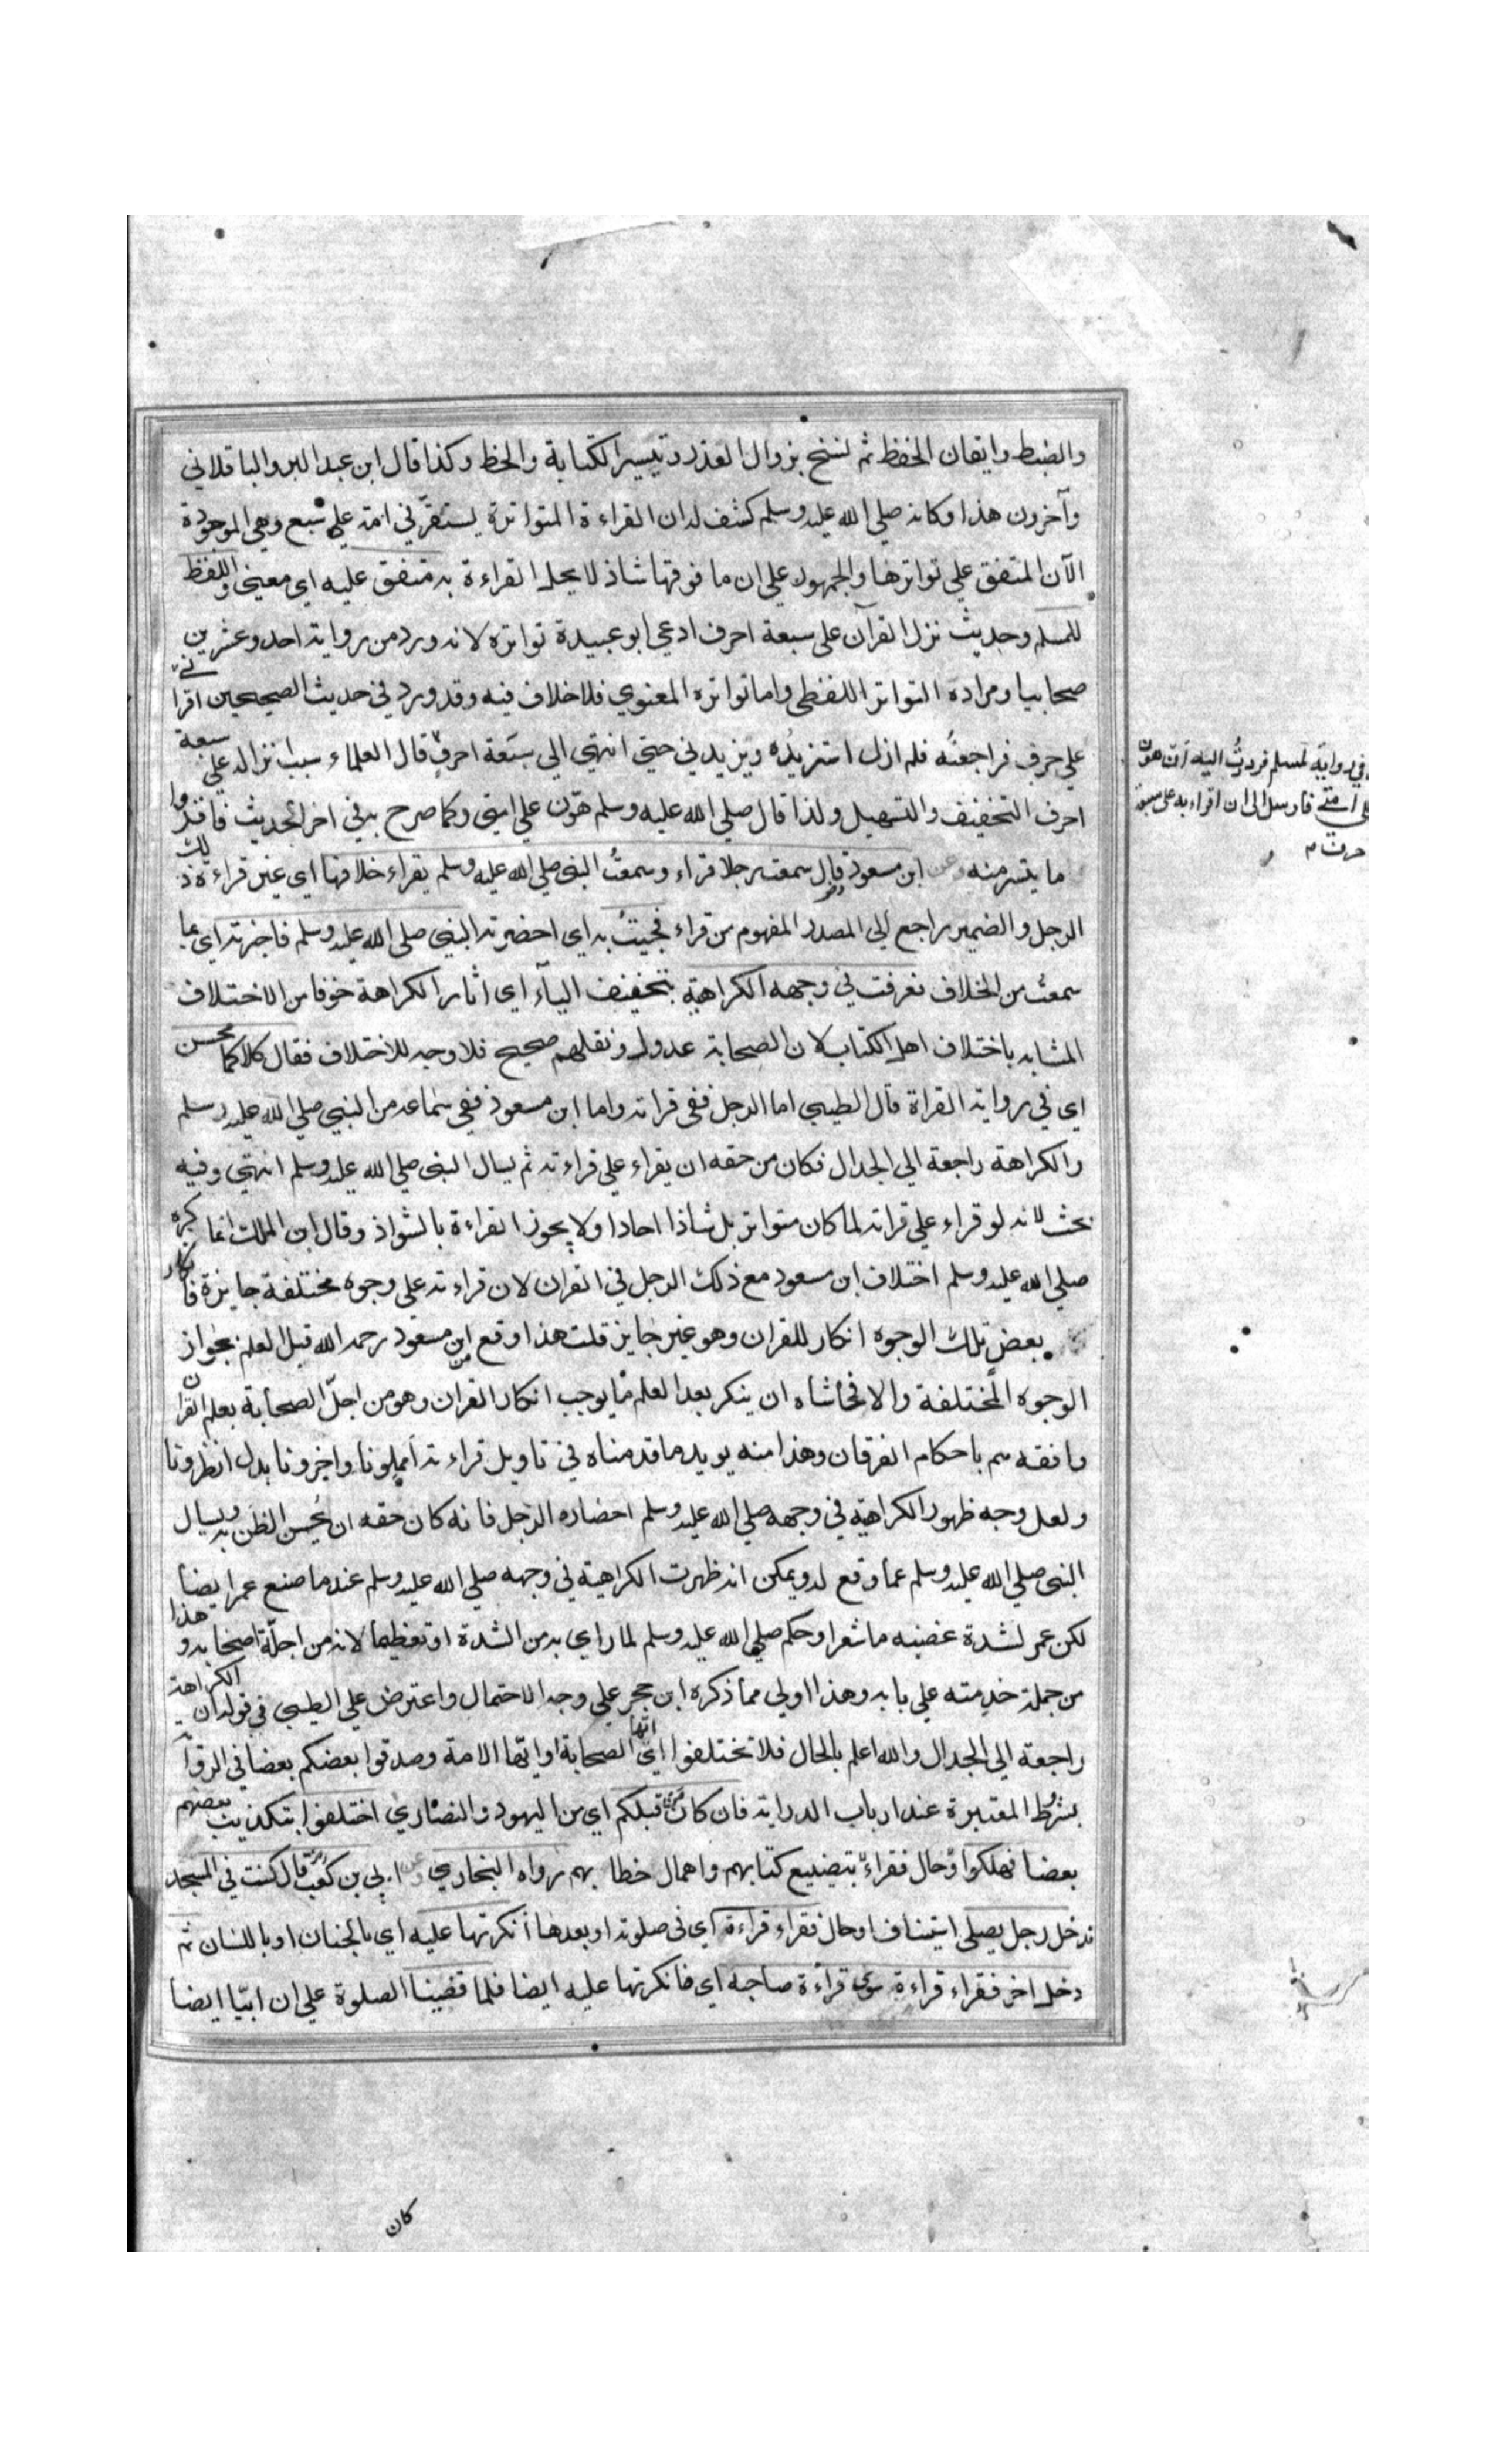 والضبط واتقان الحفظ ثم نسخ بزوال العذر وتيسير الكتابة والحفظ وكذا قال ابن عبد البر والباقلاني
وآخرون هذا وكانه صلي الله عليه وسلم كشف له ان القراءة المتواترة يستقر في امته علي سبع وهي الموجودة
الآن المتفق علي تواترها والجمهور علي ان ما فوقها شاذ لا يحل القراءة به متفق عليه اي معني واللفظ
للمسلم وحديث نزل القرآن علي سبعة احرف ادعي ابو عبيدة تواتره لانه ورد من رواية احد وعشرين
صحابيا ومراده التواتر اللفظي واما تواتره المعنوي فلا خلاف فيه وقد ورد في حديث الصحيحين اقراني
علي حرف فراجعته فلم ازل استزيده ويزيدني حتي انتهي الي سبعة احرف قال العلماء سبب انزاله علي سبعة
احرف التخفيف والتسهيل ولذا قال صلي الله عليه وسلم هون علي امتي وكما صرح به في اخر الحديث فاقرؤا
ما يتسر منه وعن ابن مسعود قال سمعت رجلا قراء وسمعت النبي صلي الله عليه وسلم يقراء خلافها اي غير قراءة ذلك
الرجل والضمير راجع الي المصدر المفهوم من قراء فجيت به اي احضرته النبي صلي الله عليه وسلم فاخبرته اي بما
سمعت من الخلاف فعرفت في وجهه الكراهية بتخفيف الياء اي اثار الكراهة خوفا من الاختلاف
المشابه باختلاف اهل الكتاب لان الصحابة عدول ونقلهم صحيح فلا وجه للاختلاف فقال كلاكما محسن
اي في رواية القراة قال الطيبي اما الرجل ففي قراته واما ابن مسعود ففي سماعه من النبي صلي الله عليه وسلم
والكراهة راجعة الي الجدال فكان من حقه ان يقراء علي قراءته ثم يسال النبي صلي الله عليه وسلم انتهي وفيه
بحث لانه لو قراء علي قراته لما كان متواتر بل شاذا احادا ولا يجوز القراءة بالشواذ وقال ابن الملك انما كره
صلي الله عليه وسلم اختلاف ابن مسعود مع ذلك الرجل في القران لان قراءته علي وجوه مختلفة جايزة فانكار
بعض تلك الوجوه انكار للقران وهو غير جايز قلت هذا وقع من ابن مسعود رحمه الله قبل العلم بجواز
الوجوه المختلفة والا فحاشاه ان ينكر بعد العلم ما يوجب انكار القران وهو من اجل الصحابة بعلم القران
وافقههم باحكام الفرقان وهذا منه يويد ما قدمناه في تاويل قراءته امهلونا واخرونا بدل انظرونا
ولعل وجه ظهور الكراهية في وجهه صلي الله عليه وسلم احضاره الرجل فانه كان حقه ان يحسن الظن به ويسال
النبي صلي الله عليه وسلم عما وقع له ويمكن انه ظهرت الكراهية في وجهه صلي الله عليه وسلم عند ما صنع عمر ايضا
لكن عمر لشدة غضبه ما شعر او حكم صلي الله عليه وسلم لما راي به من الشدة او تعظيما لانه من اجلة اصحابه وهذا
من جملة خدمته علي بابه وهذا اولي مما ذكره ابن حجر علي وجه الاحتمال واعترض علي الطيبي في قوله ان الكراهة
راجعة الي الجدال والله اعلم بالحال فلا تختلفوا اي ايها الصحابة او ايها الامة وصدقوا بعضكم بعضا في الرواية
بشرط المعتبرة عند ارباب الدراية فان كان من قبلكم اي من اليهود والنصاري اختلفوا بتكذيب بعضهم
بعضا فهلكوا وحال فقراء بتضييع كتابهم واهمال خطابهم رواه البخاري وعن ابي بن كعب قال كنت في المسجد
فدخل رجل يصلي استيناف او حال فقراء قراءة اي في صلوته او بعدها انكرتها عليه اي بالجنان او باللسان ثم
دخل اخر فقراء قراءة سوي قراءة صاحبه اي فانكرتها عليه ايضا فلما قضينا الصلوة علي ان ابيا ايضا
كان
في رواية لمسلم فرددت اليه ان هون
علي امتي فارسل الي ان اقراء به علي سبعة
حرف م